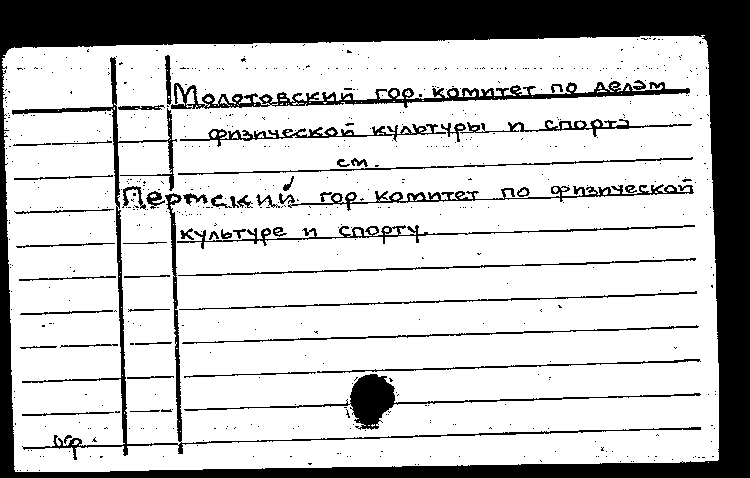 Молотовский гор. комитет по делам
физической культуры и спорта
см.
Пермский гор. комитет по физической
культуре и спорту.